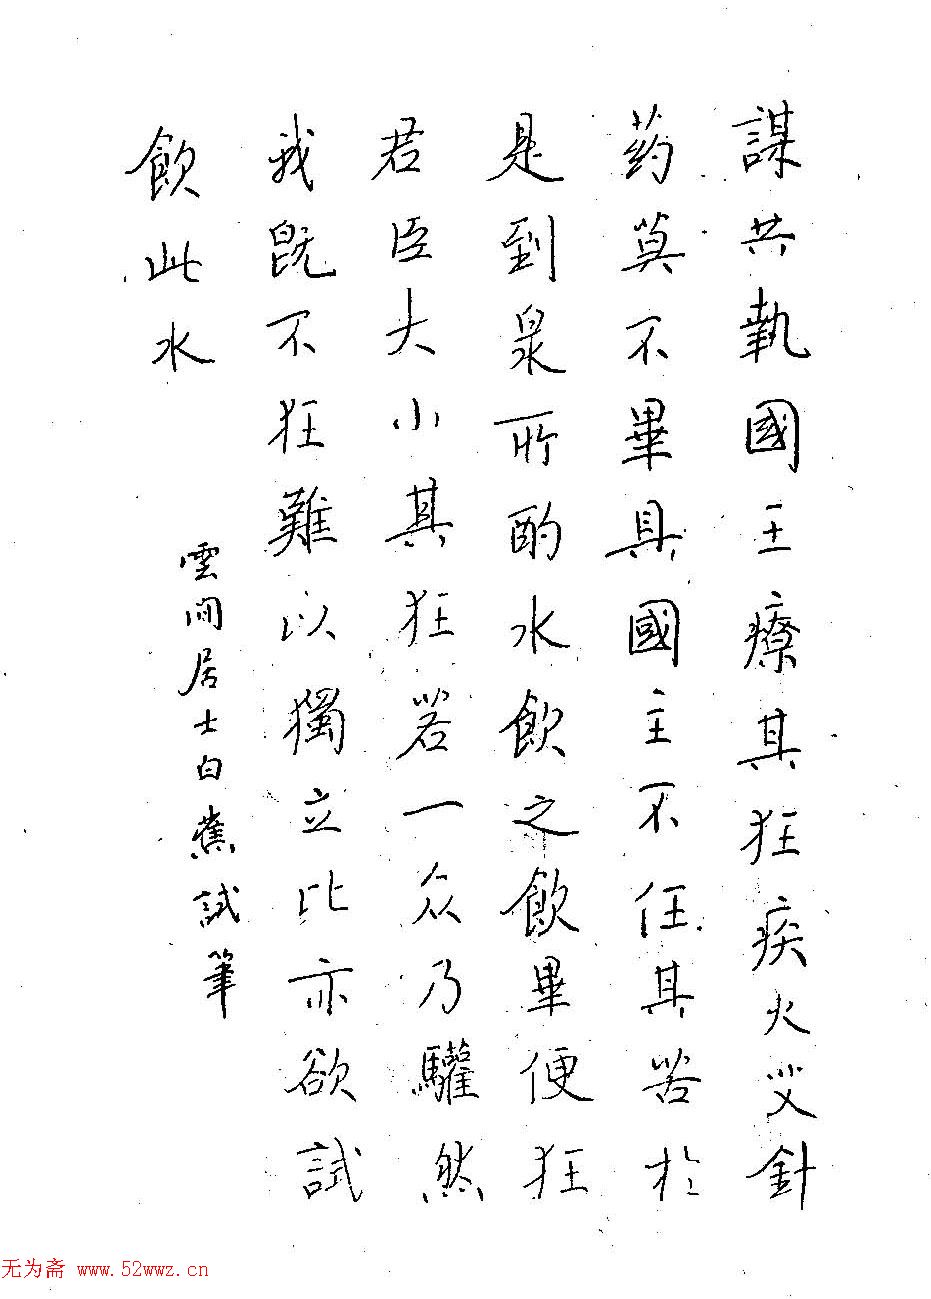 謀共執國王療其狂疾火艾針
药莫不畢具國主不任其苦於
是到泉所酌水飲之飲畢便狂
君臣大小其狂若一众乃驩然
我既不狂難以獨立比亦欲試
飲此水
雲間居士白蕉試筆
无为斋 www.52wwz.cn